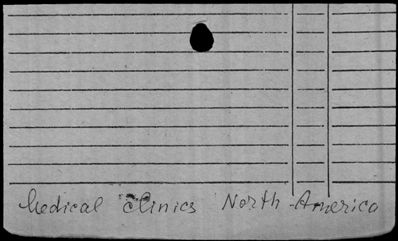 Medical Clinics North-America